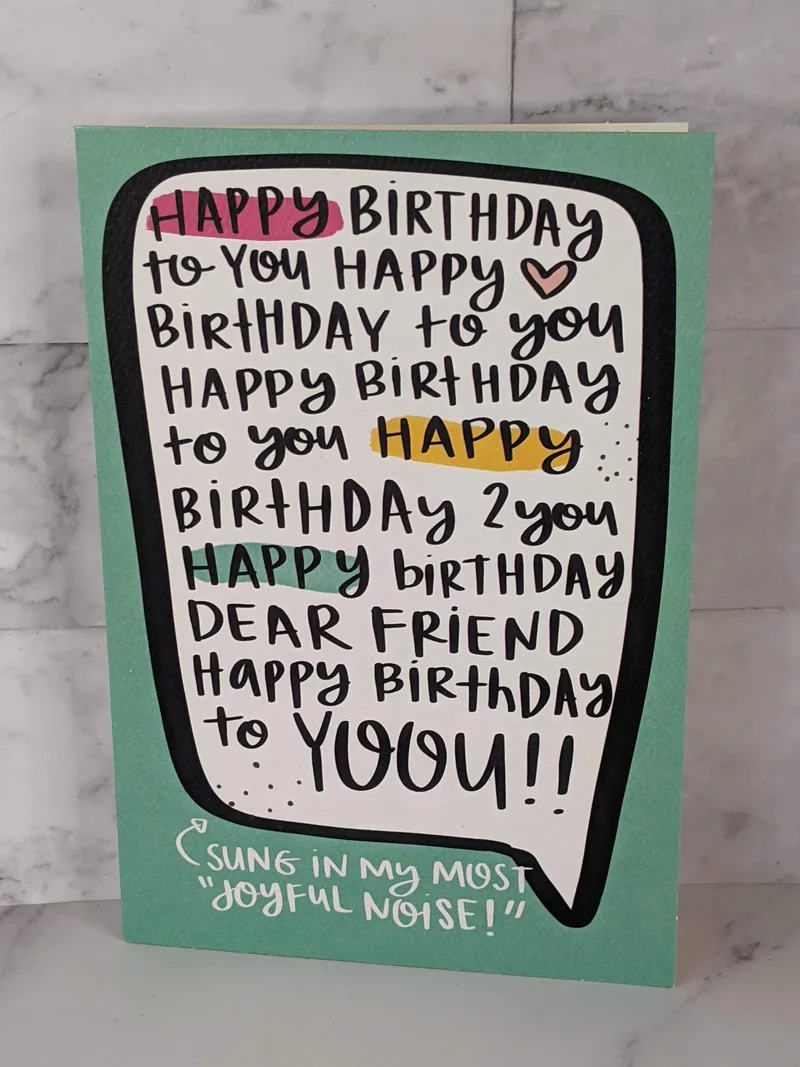 HAPPY BiRTHDAY
to YOU HAPPY
BiRtHDAY to you
HAPPY BiRtHDAY
to you HAPPY
BiRtHDAY 2 you
HAPPY biRTHDAY
DEAR FRiEND
HAPPY BiRthDAY
to YOOU!!
SUNG iN MY MOST
"JOYFUL NOiSE!"